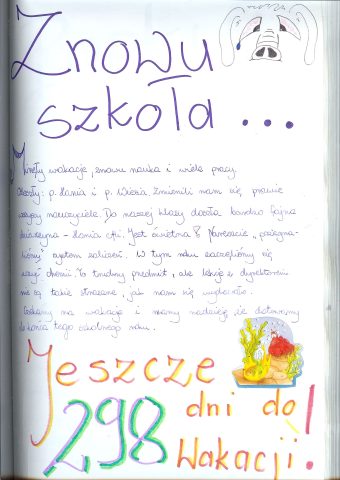 Znowu
szkoła...
Minęły wakacje, znowu nauka i wiele pracy.
Odeszły: p. Hania i p. Wiesia. Zmienili nam się prawie
wszyscy nauczyciele. Do naszej klasy doszła bardzo fajna
dziewczyna - Hania. Jest świetna! Nareszcie „pożegna-
liśmy” system zaliczeń. W tym roku zaczęliśmy się
uczyć chemii. To trudny przedmiot, ale lekcje z dyrektorem
nie są takie straszne, jak nam się wydawało.
Czekamy na wakacje i mamy nadzieję, że dotrwamy
do końca tego szkolnego roku.
Jeszcze
298 dni do
Wakacji!